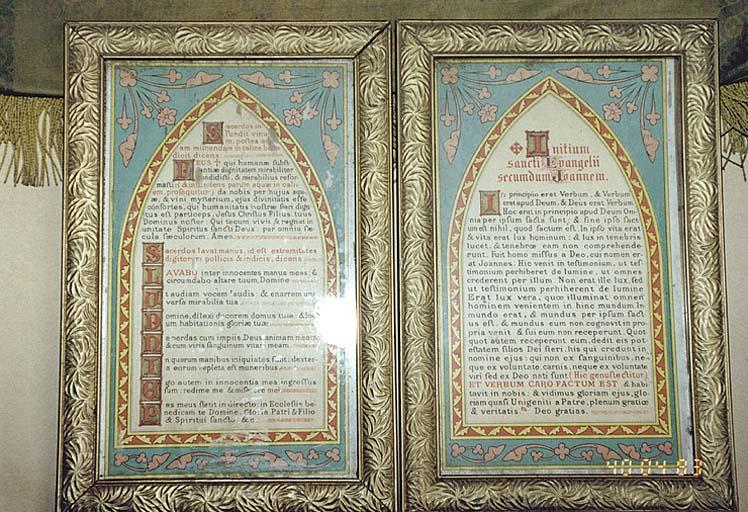 Sacerdos in
fundit vinu
m, postea aq
am miscendam in calice be
dicit dicens
DEUS ✠ qui humanæ subst
antiæ dignitatem mirabiliter
condidisti, & mirabilius refor
masti
em, prosequitur: da nobis per hujus aqu
æ, & vini mysterium, ejus divinitatis effe
consortes, qui humanitatis nostræ fieri dign
tus est particeps, Jesus Christus Filius tuus
Dominus noster: Qui tecum vivit & regnat in
unitate Spiritus sancti Deus: per omnia sæ
cula sæculorum. Amen
Sacerdos lavat manus, id est extremitates
digitorum pollicis & indicis, dicens
LAVABO inter innocentes manus meas: &
circumdabo altare tuum, Domine
Ut audiam vocem laudis: & enarrem uni
versa mirabilia tua
Domine, dilexi decorem domus tuæ: & lo
um habitationis gloriæ tuæ
Ne perdas cum impiis, Deus, animam meam:
& cum viris sanguinum vitam meam.
In quorum manibus iniquitates sunt: dexter
a eorum repleta est muneribus
Ego autem in innocentia mea ingressus
sum: redime me, & miserere mei
Pes meus stetit in directo: in Ecclesiis be
nedicam te Domine. Gloria Patri & Filio
& Spiritui sancto. &c.
✠ Initium
sancti Evangelii
secundum Joannem.
In principio erat Verbum, & Verbum
erat apud Deum, & Deus erat Verbum
Hoc erat in principio apud Deum Om
nia per ipsum facta sunt: & sine ipso fact
um est nihil, quod factum est. In ipso vita erat
& vita erat lux hominum: & lux in tenebris
lucet, & tenebræ eam non comprehende
runt. Fuit homo missus a Deo, cui nomen er
at Joannes. Hic venit in testimonium, ut tes
timonium perhiberet de lumine, ut omnes
crederent per illum. Non erat ille lux, sed
ut testimonium perhiberet de lumine
Erat lux vera, quæ illuminat omnem
hominem venientem in hunc mundum. In
mundo erat, & mundus per ipsum fact
us est, & mundus eum non cognovit in pro
pria venit, & sui eum non receperunt. Quot
quot autem receperunt eum, dedit eis pot
estatem filios Dei fieri, his qui credunt in
nomine ejus: qui non ex sanguinibus, ne
que ex voluntate carnis, neque ex voluntate
viri sed ex Deo nati sunt (Hic genuflectitur)
ET VERBUM CARO FACTUM EST & habi
tavit in nobis: & vidimus gloriam ejus, glo
riam quasi Unigeniti a Patre, plenum gratiæ
& veritatis. ℟. Deo gratias.